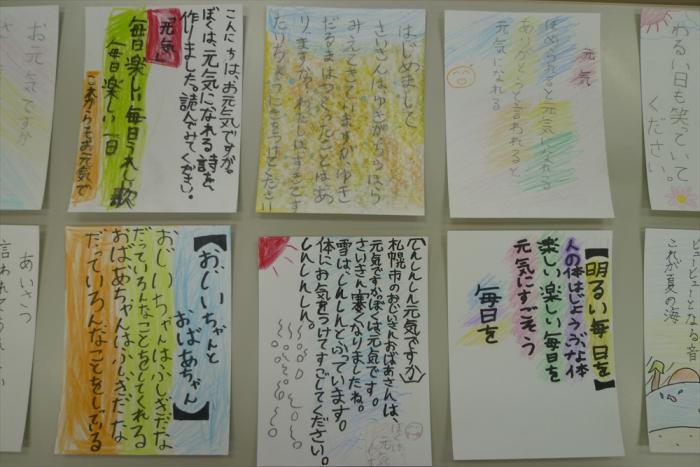 お元気ですか
こんにちは、お元気ですか。
ぼくは、元気になれる詩を、
作りました。読んでみてください。
「元気」
毎日楽しい毎日うれしい歌
毎日楽しい一日
これからもお元気で
はじめまして
さいきんは、ゆきがちらほら
みえてきていますが、ゆき
だるまはつくったことはあ
りますか?わたしはすきです
たいちょうにきをつけてください
元気
ほめられると元気になれる
ありがとうと言われると
元気になれる
わるい日も笑っていて
ください。
あいさつ
言われてうれしい
【おじいちゃんと
おばあちゃん】
おじいちゃんはふしぎだな
だっていろんなことをしてくれる
おばあちゃんはふしぎだな
だっていろんなことをしている
(しんしんしん元気ですか)
札幌市のおじいさんおばあさんは、
元気ですか。ぼくは元気です。
さいきん寒くなりましたね。
雪は、しんしんといっています。
体にお気をつけてすごしてください。
しんしんしん。
【明るい毎日を】
人の体はじょうぶな体
楽しい楽しい毎日を
元気にすごそう
毎日を
ューとなる音
これが夏の海